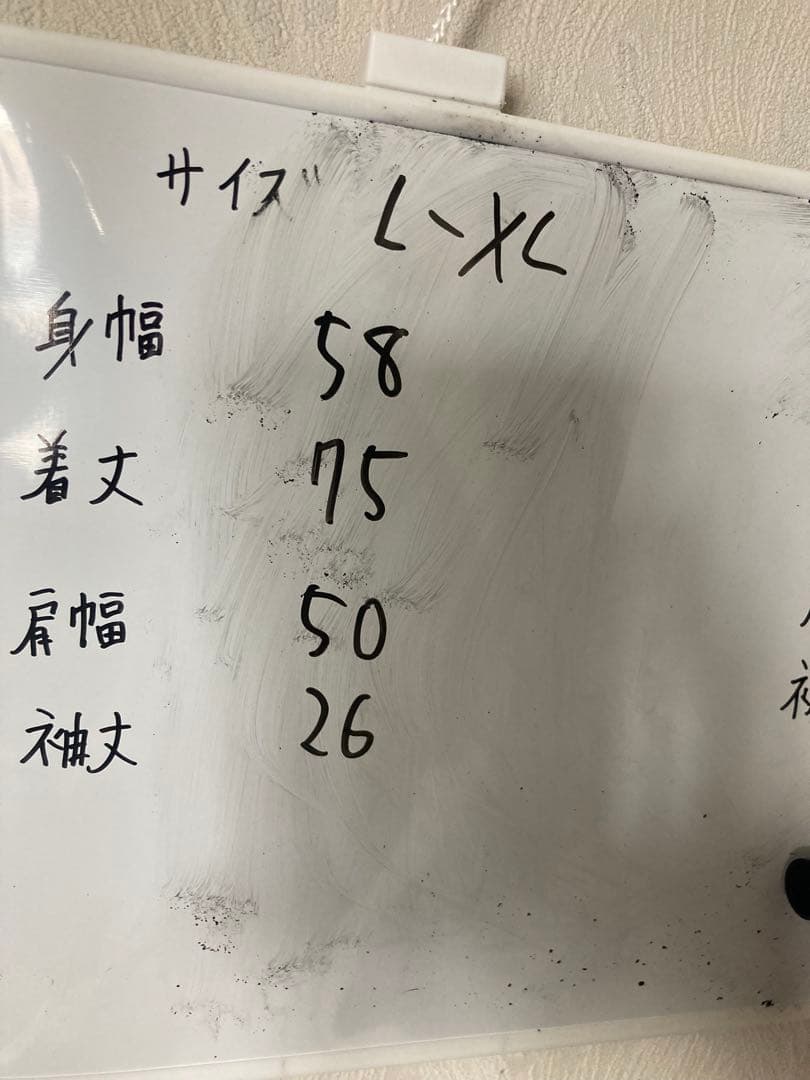 サイズ L~XL
身幅 58
着丈 75
肩幅 50
袖丈 26